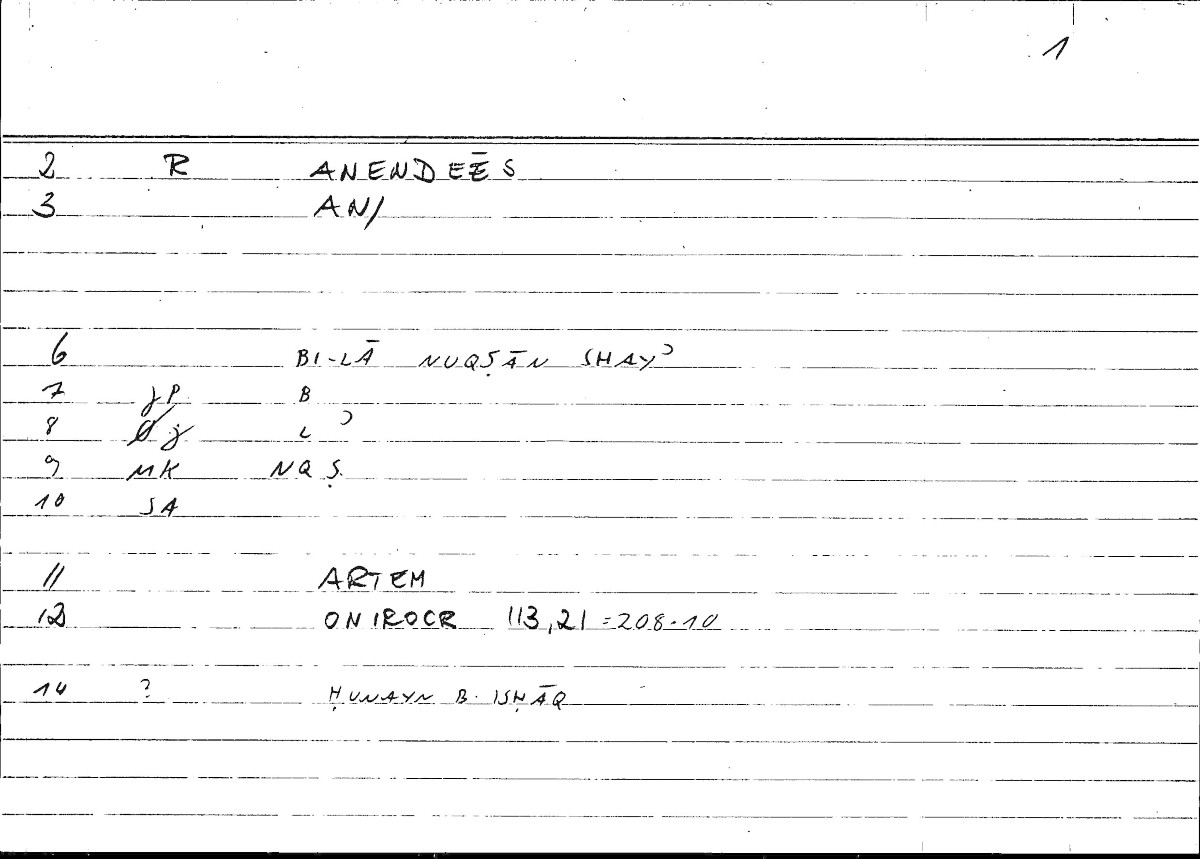 1
2 R ANENDEĒS
3 AN/
6 BI-LĀ NUQṢĀN SHAYʾ
7 jP B
8 j L ʾ
9 MK NQṢ
10 SA
11 ARTEM
12 ONIROCR 113,21 = 208.10
14 ? ḤUNAYN B. ISḤĀQ